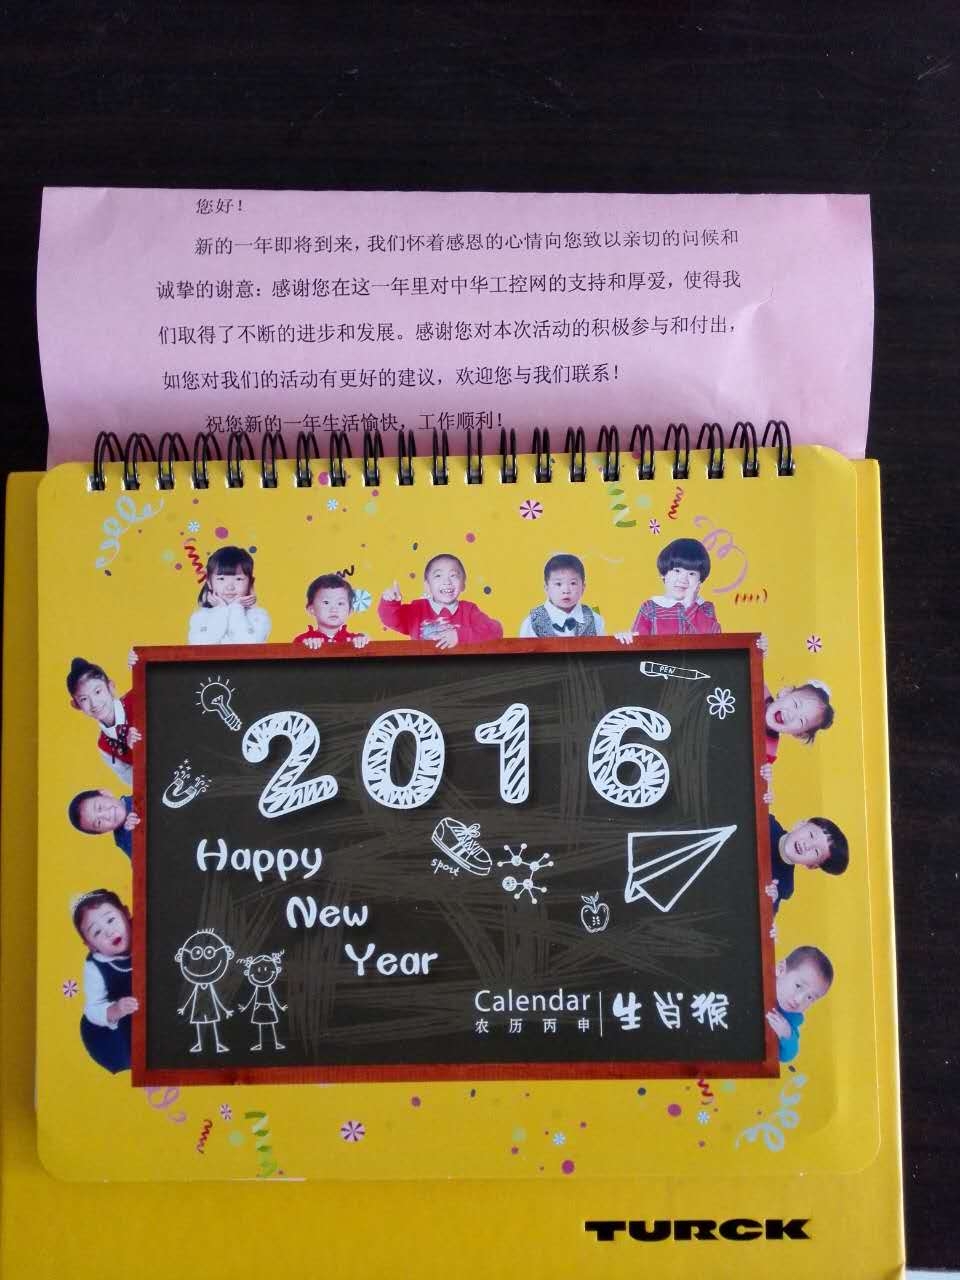 您好！
新的一年即将到来，我们怀着感恩的心情向您致以亲切的问候和
诚挚的谢意：感谢您在这一年里对中华工控网的支持和厚爱，使得我
们取得了不断的进步和发展。感谢您对本次活动的积极参与和付出，
如您对我们的活动有更好的建议，欢迎您与我们联系！
祝您新的一年生活愉快，工作顺利！
PEN
2016
Happy
sport
New
Year
Calendar
农历丙申
生肖猴
TURCK